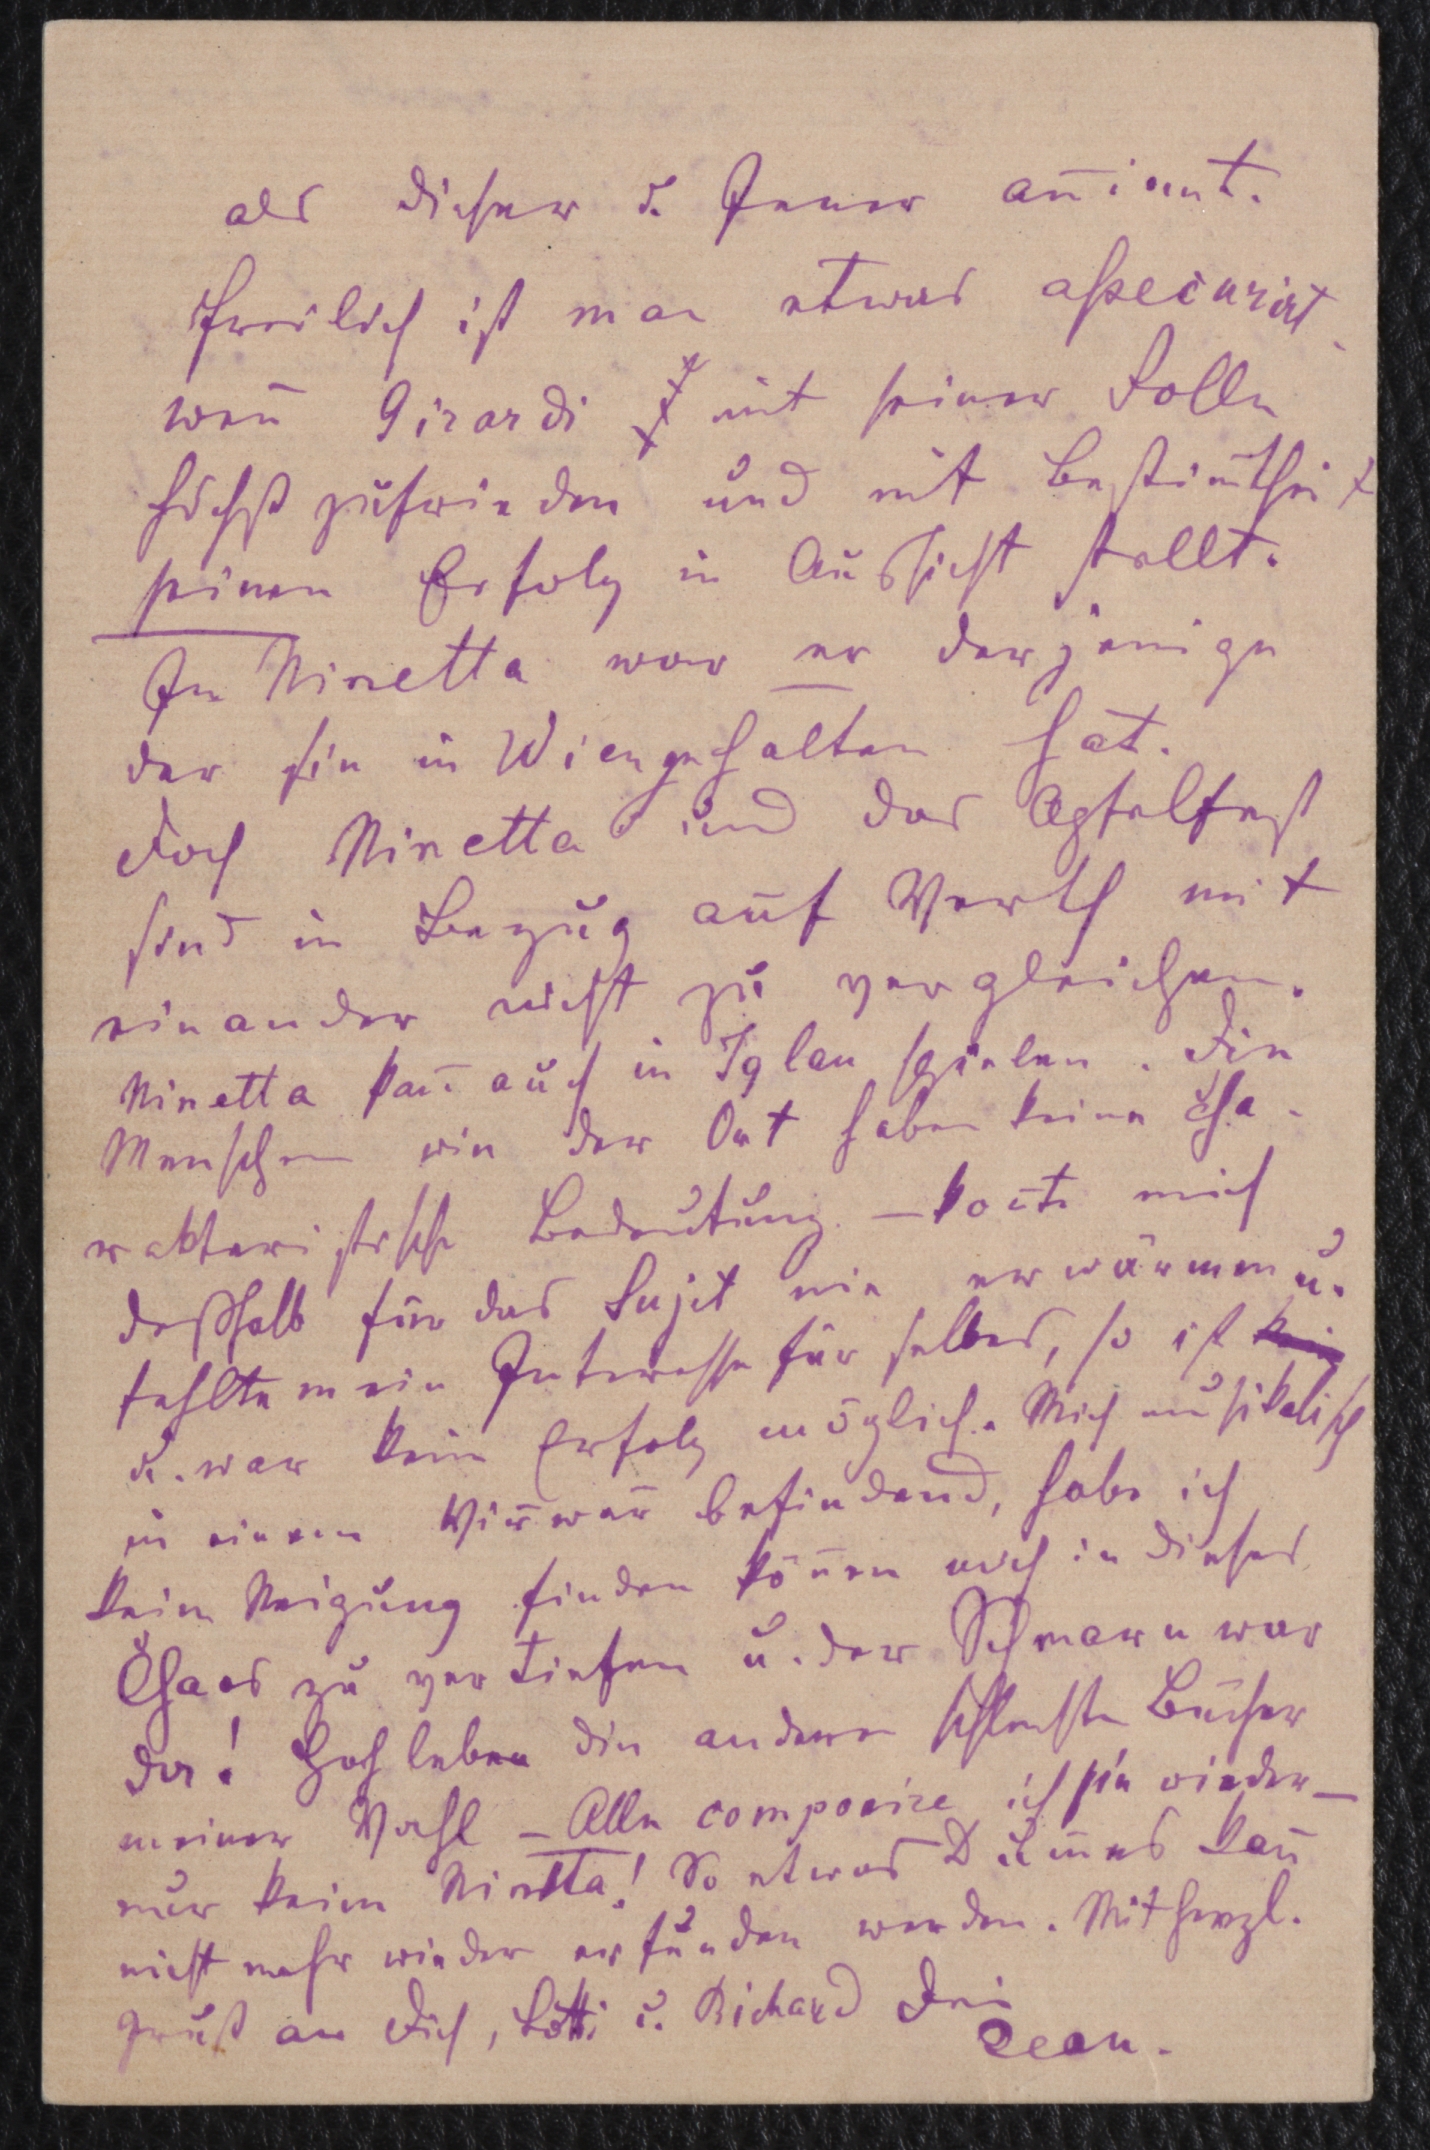 als dieser u. Jener anim̄t.
Freilich ist man etwas assecurirt
wen̄ Girardi mit seiner Rolle
höchst zufrieden und mit Bestim̄theit
seinen Erfolg in Aussicht stellt.
In Ninetta war er derjenige
der sie in Wien gehalten hat.
Doch Ninetta und das Apfelfest
sind in Bezug auf Werth mit
einander nicht zu vergleichen.
Ninetta kan̄ auch in Iglau spielen. Die
Menschen wie der Ort haben keine Cha-
rakteristische Bedeutung – kon̄te mich
deßhalb für das Sujet nie erwärmen u.
fehlte mein Interesse für selbes, so ist kein
u. war kein Erfolg möglich. Mich musikalisch
in einem Wirrwar̄ befindend, habe ich
keine Neigung finden kön̄en mich in dieses
Chaos zu vertiefen u. der Schmarn war
da! Hoch leben die andern schlechten Bücher
meiner Wahl – Alle componire ich sie wieder –
nur keine Ninetta! So etwas Dum̄es kan̄
nicht mehr wieder erfunden werden. Mit herzl.
Gruß an Dich, Lotti u. Richard Dei
Jean.